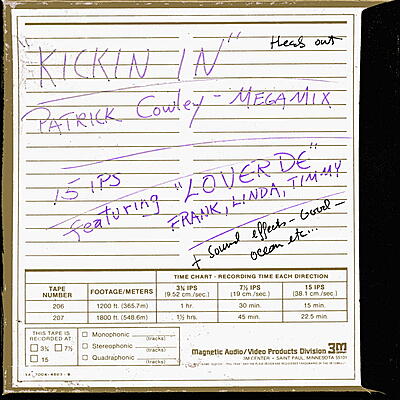 Heads out
"KICKIN IN"
PATRICK Cowley - MEGAMIX
15 IPS
featuring "LOVERDE"
FRANK, LINDA, TIMMY
+ Sound effects - Good -
ocean etc...
TIME CHART - RECORDING TIME EACH DIRECTION
TAPE NUMBER FOOTAGE/METERS 3¾ IPS (9.52 cm./sec.) 7½ IPS (19 cm./sec.) 15 IPS (38.1 cm./sec.)
206 1200 ft. (365.7m) 1 hr. 30 min. 15 min.
207 1800 ft. (548.6m) 1½ hrs. 45 min. 22.5 min.
THIS TAPE IS RECORDED AT:
3¾ 7½
15
Monophonic (tracks)
Stereophonic (tracks)
Quadraphonic (tracks)
Magnetic Audio/Video Products Division 3M
3M CENTER • SAINT PAUL, MINNESOTA 55101